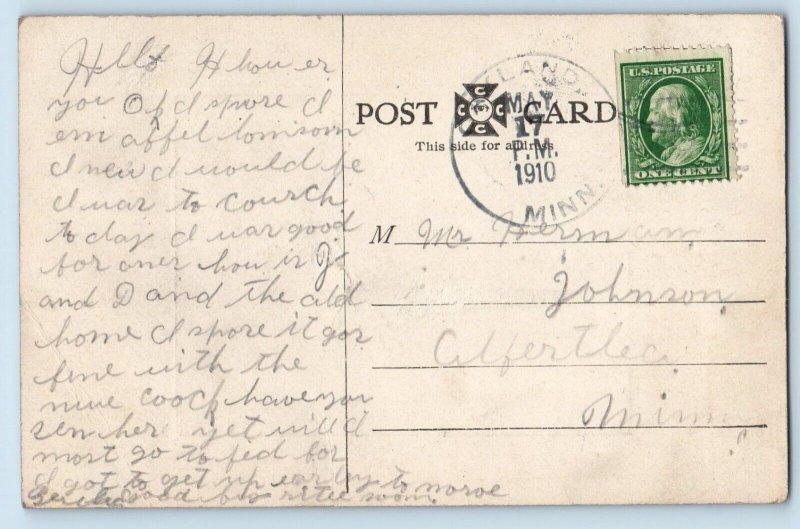 Hello H hou er
you O I spore I
em affel lomsom
I neu I would be
I uar to courch
to day I uar good
for oner hou is J
and D and the old
home I spore it gos
fine with the
nuve coock have you
sen her yet will I
most go to fed for
I got to get up early to moroe
good by ritee soom.
POST CARD
This side for address
MAY
17
P.M.
1910
MINN.
U.S. POSTAGE
ONE CENT
M Mr Herman
Johnson
Alfertlea
Minn